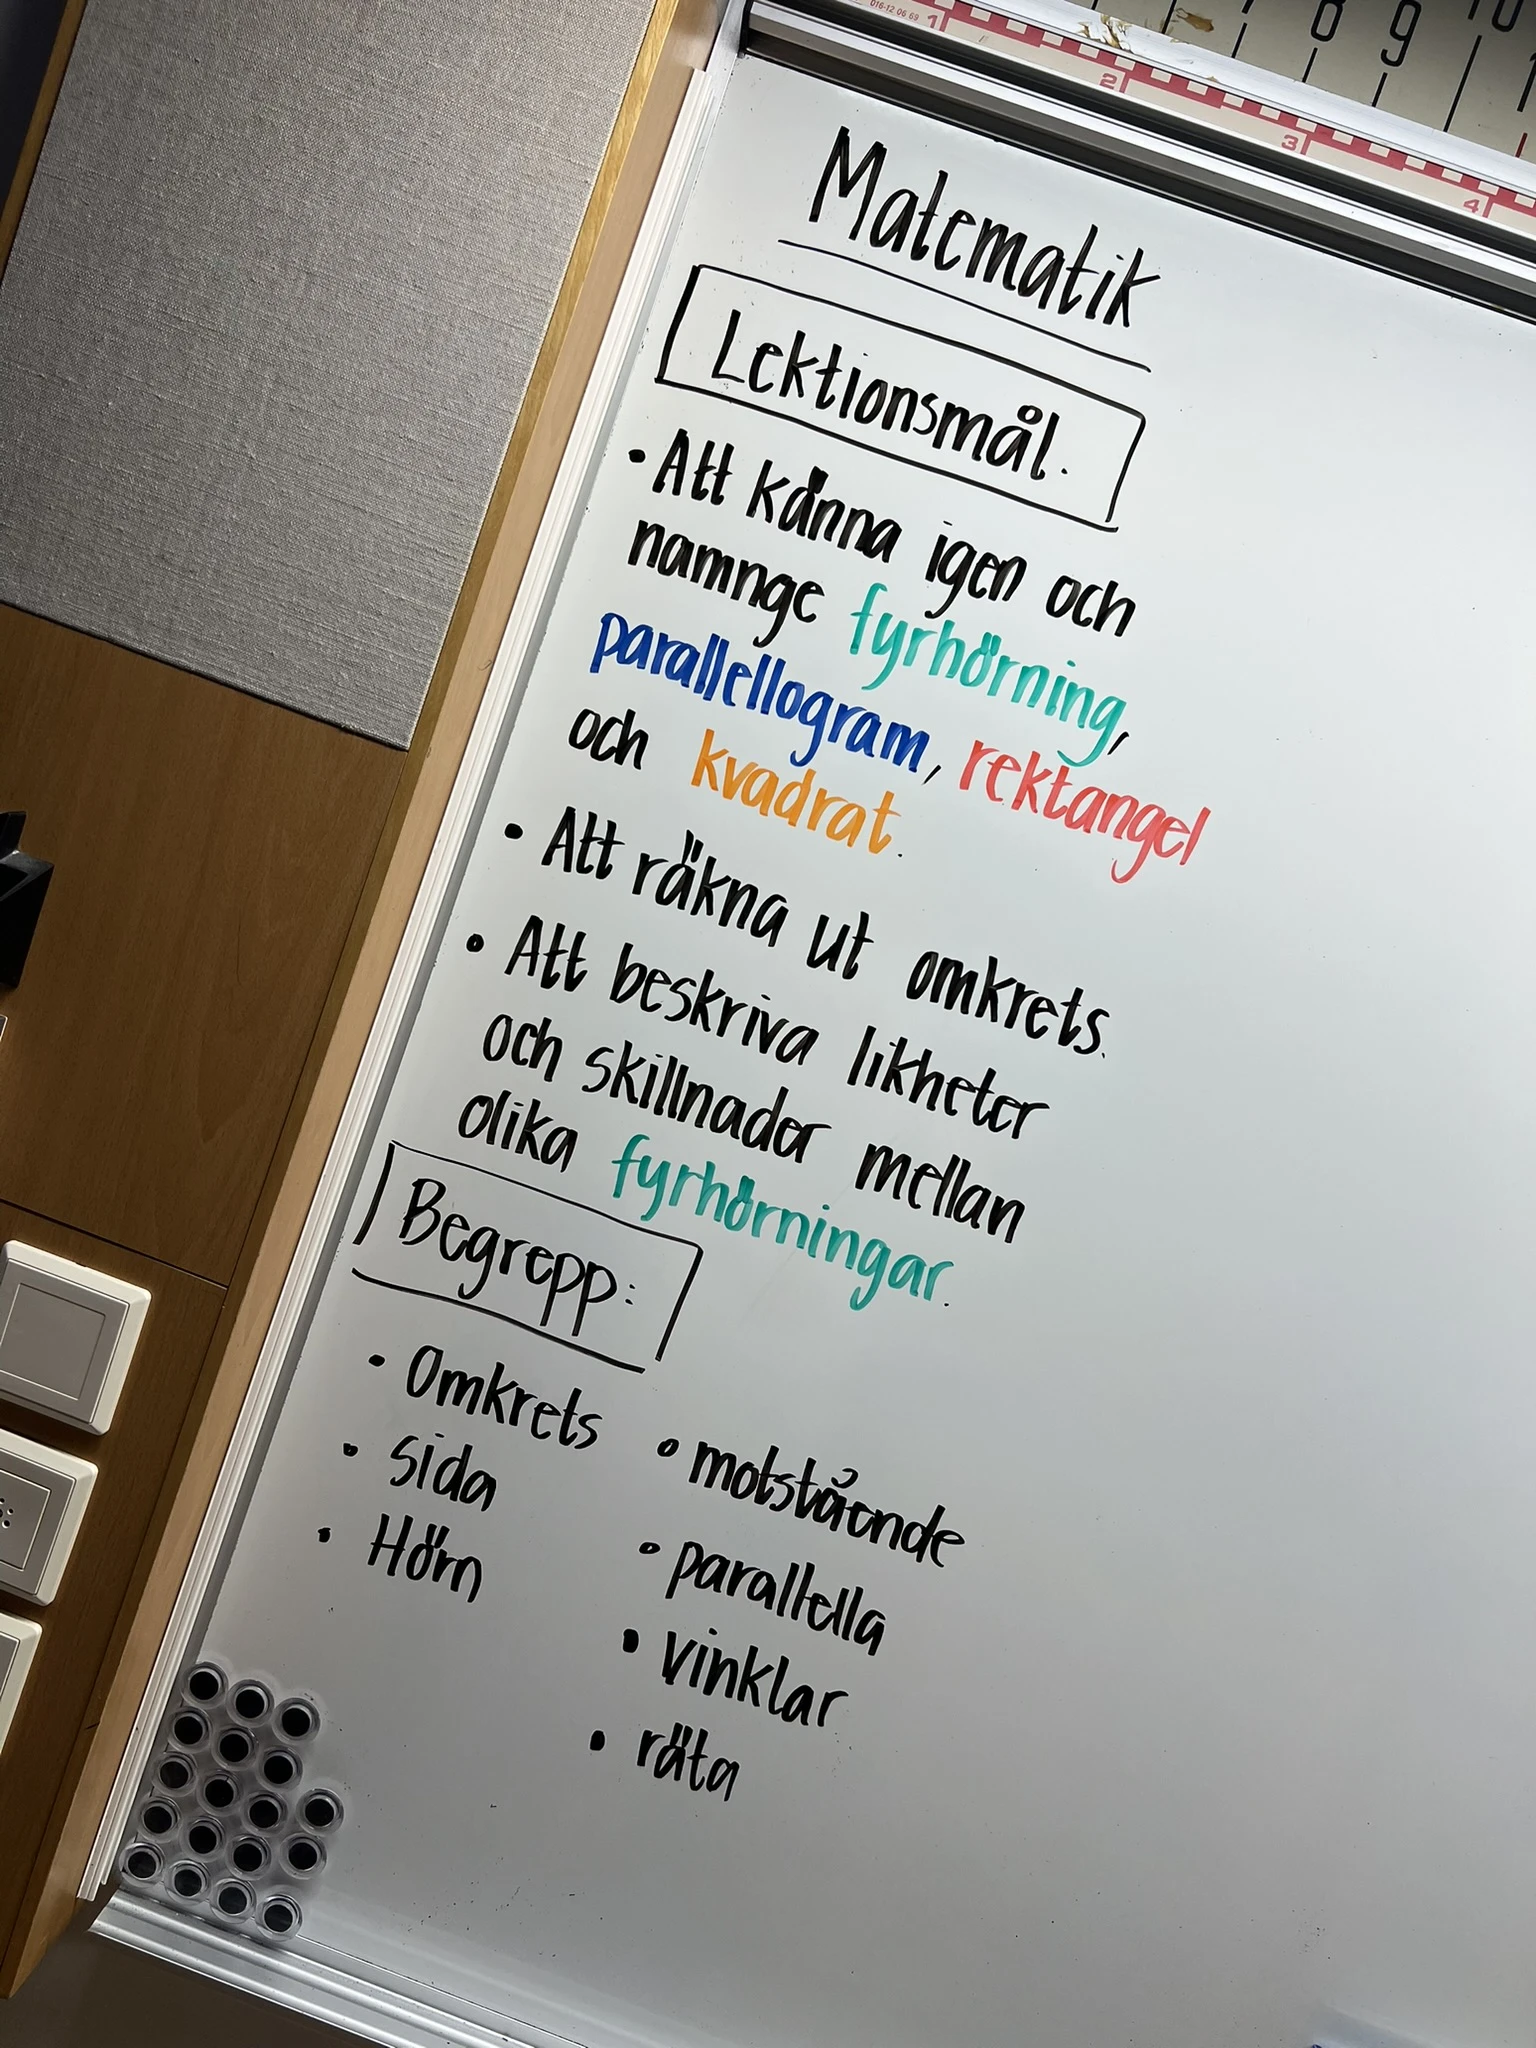 D16-12 06 69
1 2 3 4
8 9 10
Matematik
Lektionsmål.
• Att känna igen och
namnge fyrhörning,
parallellogram, rektangel
och kvadrat.
• Att räkna ut omkrets.
• Att beskriva likheter
och skillnader mellan
olika fyrhörningar.
Begrepp:
• Omkrets
• sida
• Hörn
• motstående
• parallella
• vinklar
• räta